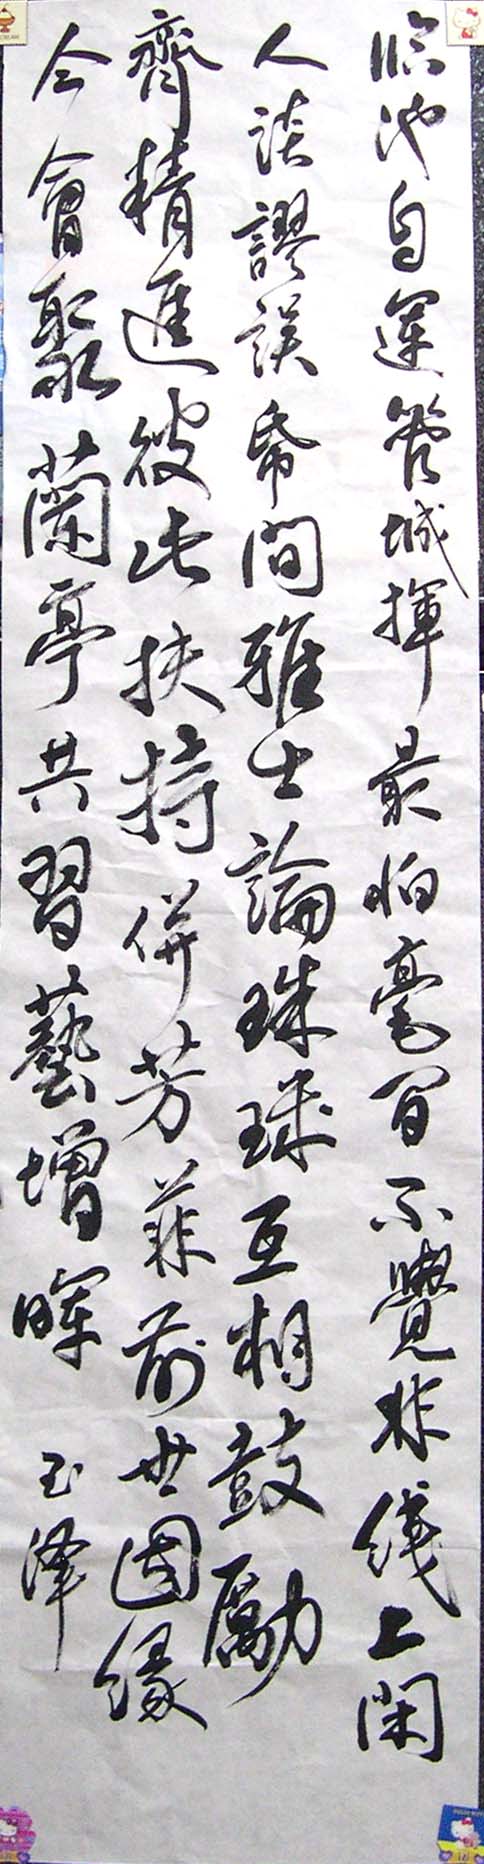 臨池自運管城揮最怕毫間不覺非綫上閑
人談謬誤帋間雅士論珠璣互相鼓勵
齊精進彼此扶持併芳菲前世因緣
今會聚蘭亭共習藝增暉
玉澤